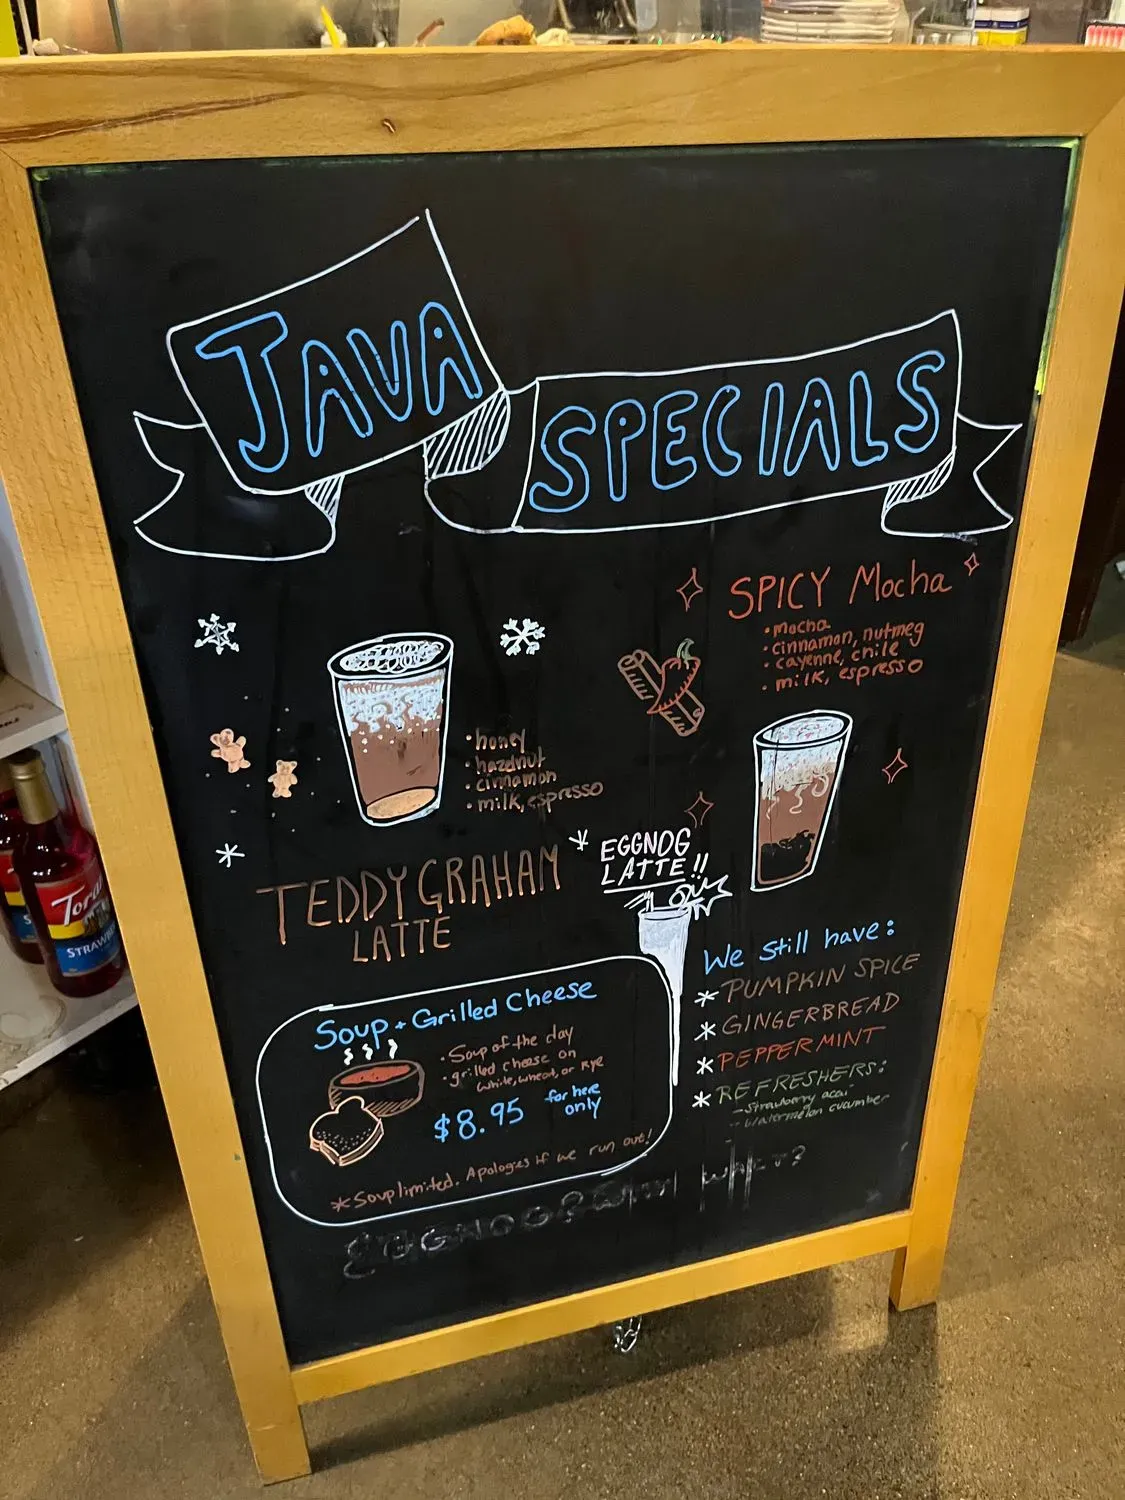 JAVA
SPECIALS
SPICY Mocha
• mocha
• cinnamon, nutmeg
• cayenne, chile
• milk, espresso
• honey
• hazelnut
• cinnamon
• milk, espresso
TEDDY GRAHAM
LATTE
EGGNOG
LATTE!!
We still have:
* PUMPKIN SPICE
* GINGERBREAD
* PEPPERMINT
* REFRESHERS:
- Strawberry acai
- watermelon cucumber
Soup + Grilled Cheese
• Soup of the day
• grilled cheese on
white, wheat, or Rye
$8.95 for here
only
* Soup limited. Apologies if we run out!
EGGNOG?
Torani
STRAWB